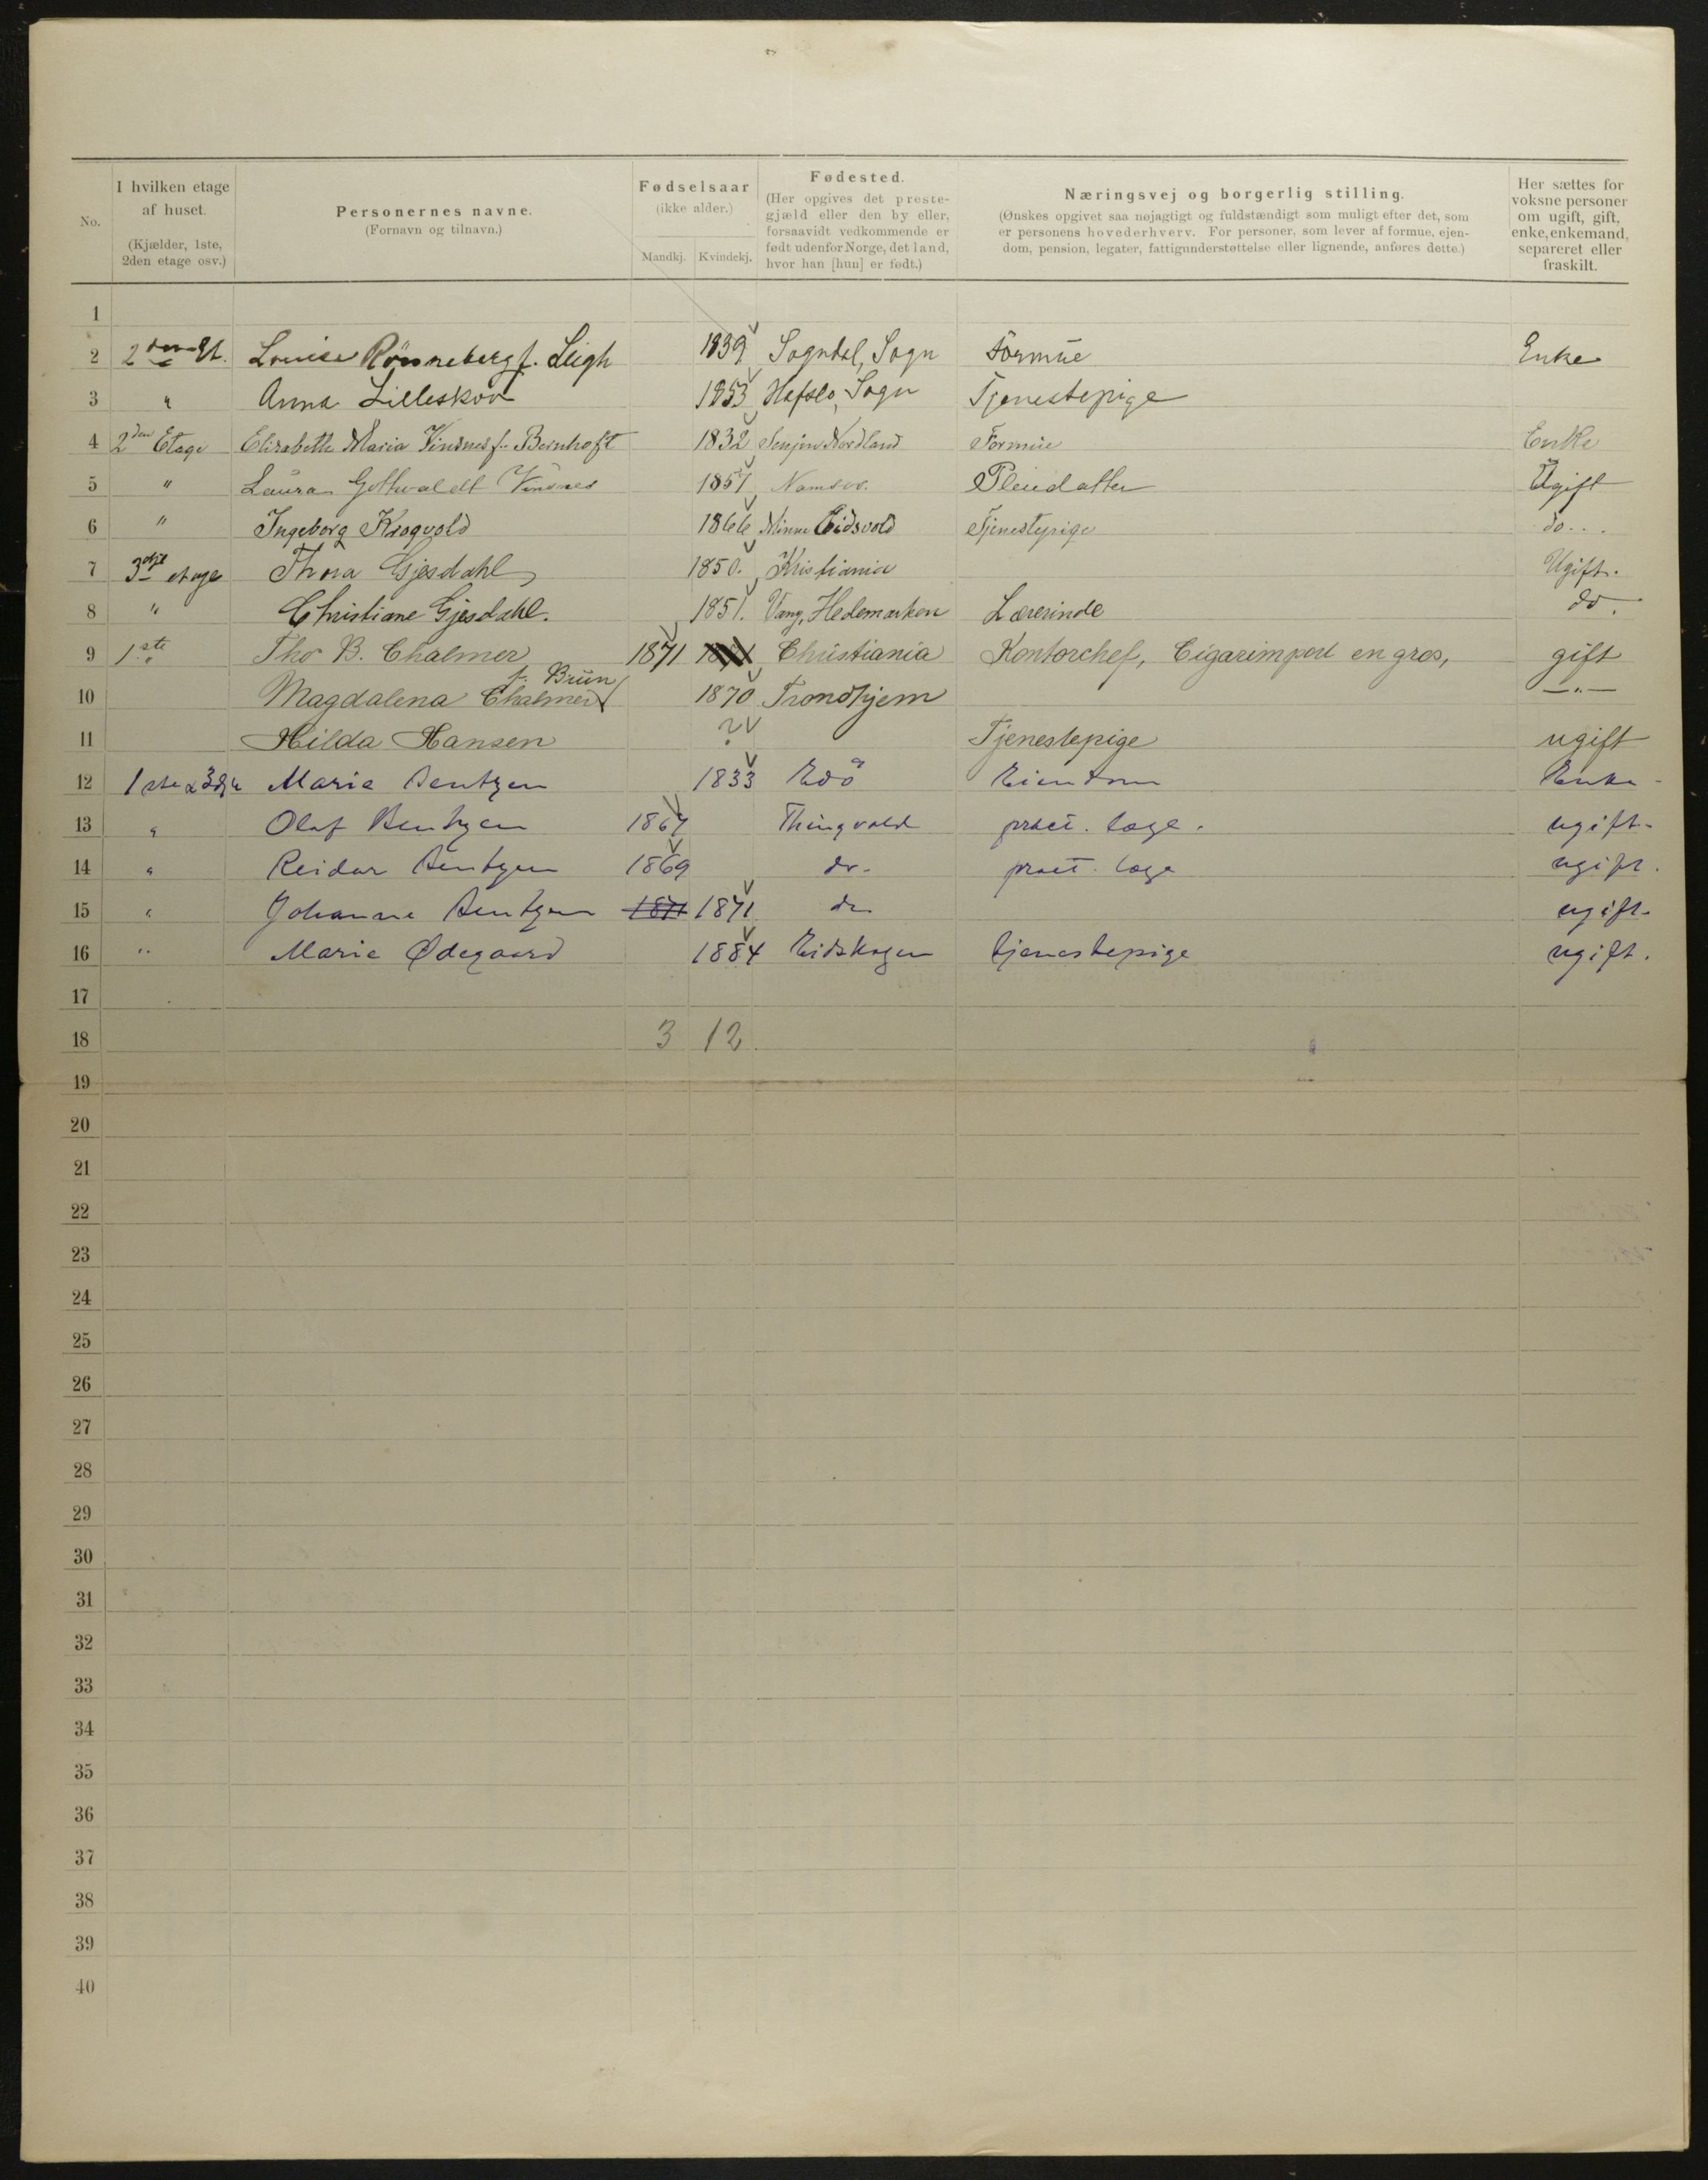 No.
I hvilken etage af huset.
(Kjælder, 1ste, 2den etage osv.)
Personernes navne.
(Fornavn og tilnavn.)
Fødselsaar
(ikke alder.)
Mandkj. Kvindekj.
Fødested.
(Her opgives det prestegjæld eller den by eller, forsaavidt vedkommende er født udenfor Norge, det land, hvor han [hun] er født.)
Næringsvej og borgerlig stilling.
(Ønskes opgivet saa nøjagtigt og fuldstændigt som muligt efter det, som er personens hovederhverv. For personer, som lever af formue, ejendom, pension, legater, fattigunderstøttelse eller lignende, anføres dette.)
Her sættes for voksne personer om ugift, gift, enke, enkemand, separeret eller fraskilt.
1
2 2den Et. Louise Rönneberg f. Leigh 1839 Sogndal, Sogn Formue Enke
3 " Anna Lilleskov 1853 Hafslo, Sogn Tjenestepige
4 2den Etage Elisabeth Maria Vindnes f. Bernhoft 1832 Senjen Nordland Formue Enke
5 " Laura Gottwaldt Vindnes 1857 Namsos. Pleiedatter Ugift
6 " Ingeborg Krogvold 1866 Minne Eidsvold Tjenestepige do...
7 3dje etage Thora Gjesdahl 1850. Kristiania Ugift.
8 " Christiane Gjesdahl. 1851. Vang, Hedemarken Lærerinde do.
9 1ste Tho B. Chalmer 1871 Christiania Kontorchef, Cigarimport en gros, gift
10 Magdalena Chalmer f. Brün 1870 Trondhjem — " —
11 Hilda Hansen ? Tjenestepige ugift
12 1ste & 3dje Marie Bentzen 1833 Edö Eiendom Enke
13 " Olaf Bentzen 1867 Thingvold pract. læge. ugift.
14 " Reidar Bentzen 1869 do. pract. læge ugift.
15 " Johanne Bentzen 1871 1871 do ugift.
16 " Marie Ødegaard 1884 Eidskogen tjenestepige ugift.
17
18 3 12
19
20
21
22
23
24
25
26
27
28
29
30
31
32
33
34
35
36
37
38
39
40